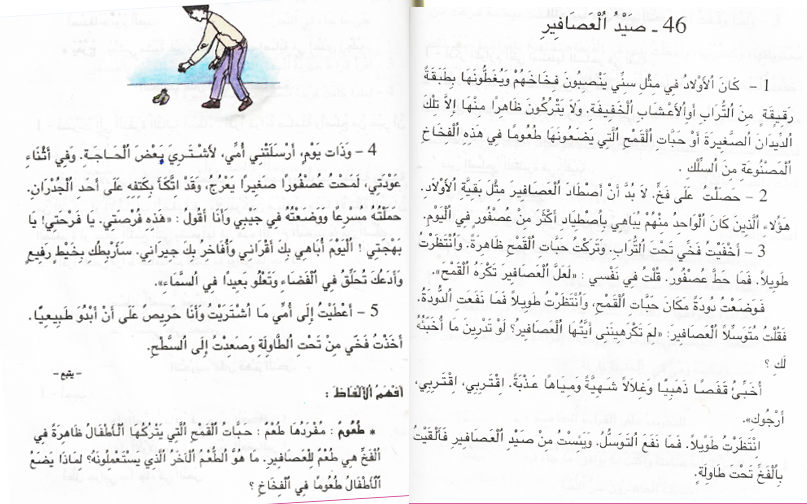 46 ـ صَيْدُ ٱلْعَصَافِيرِ
1 - كَانَ ٱلْأَوْلَادُ فِي مِثْلِ سِنِّي يَنْصِبُونَ فِخَاخَهُمْ وَيُغَطُّونَهَا بِطَبَقَةٍ
رَقِيقَةٍ مِنَ ٱلتُّرَابِ أَوِ ٱلْأَعْشَابِ ٱلْخَفِيفَةِ. وَلَا يَتْرُكُونَ ظَاهِرًا مِنْهَا إِلَّا تِلْكَ
ٱلدِّيدَانَ ٱلصَّغِيرَةَ أَوْ حَبَّاتِ ٱلْقَمْحِ ٱلَّتِي يَضَعُونَهَا طُعُومًا فِي هَذِهِ ٱلْفِخَاخِ
ٱلْمَصْنُوعَةِ مِنَ ٱلسِّلْكِ .
2 - حَصَلْتُ عَلَى فَخٍّ. لَا بُدَّ أَنْ أَصْطَادَ ٱلْعَصَافِيرَ مِثْلَ بَقِيَّةِ ٱلْأَوْلَادِ.
هَؤُلَاءِ ٱلَّذِينَ كَانَ ٱلْوَاحِدُ مِنْهُمْ يُبَاهِي بِٱصْطِيَادِ أَكْثَرَ مِنْ عُصْفُورٍ فِي ٱلْيَوْمِ.
3 - أَخْفَيْتُ فَخِّي تَحْتَ ٱلتُّرَابِ. وَتَرَكْتُ حَبَّاتِ ٱلْقَمْحِ ظَاهِرَةً. وَٱنْتَظَرْتُ
طَوِيلاً. فَمَا حَطَّ عُصْفُورٌ. قُلْتُ فِي نَفْسِي : «لَعَلَّ ٱلْعَصَافِيرَ تَكْرَهُ ٱلْقَمْحَ».
فَوَضَعْتُ دُودَةً مَكَانَ حَبَّاتِ ٱلْقَمْحِ، وَٱنْتَظَرْتُ طَوِيلاً فَمَا نَفَعَتِ ٱلدُّودَةُ.
فَقُلْتُ مُتَوَسِّلاً ٱلْعَصَافِيرَ: «لِمَ تَكْرَهِينَنِي أَيَّتُهَا ٱلْعَصَافِيرُ؟ أَوْ تَدْرِينَ مَا أُخَبِّئُهُ
لَكِ ؟
أُخَبِّئُ قَفَصًا ذَهَبِيًّا وَغِلَالاً شَهِيَّةً وَمِيَاهًا عَذْبَةً. اِقْتَرِبِي، اِقْتَرِبِي،
أَرْجُوكِ».
اِنْتَظَرْتُ طَوِيلاً. فَمَا نَفَعَ ٱلتَّوَسُّلُ. وَيَئِسْتُ مِنْ صَيْدِ ٱلْعَصَافِيرِ فَأَلْقَيْتُ
بِٱلْفَخِّ تَحْتَ طَاوِلَةٍ.
4 - وَذَاتَ يَوْمٍ، أَرْسَلَتْنِي أُمِّي، لِأَشْتَرِيَ بَعْضَ ٱلْحَاجَةِ. وَفِي أَثْنَاءِ
عَوْدَتِي، لَمَحْتُ عُصْفُورًا صَغِيرًا يَعْرُجُ، وَقَدْ اتَّكَأَ بِكَتِفِهِ عَلَى أَحَدِ ٱلْجُدْرَانِ.
حَمَلْتُهُ مُسْرِعا وَوَضَعْتُهُ فِي جَيْبِي وَأَنَا أَقُولُ : «هَذِهِ فُرْصَتِي. يَا فَرْحَتِي! يَا
بَهْجَتِي ! ٱلْيَوْمَ أُبَاهِي بِكَ أَقْرَانِي وَأُفَاخِرُ بِكَ جِيرَانِي. سَأَرْبِطُكَ بِخَيْطٍ رَفِيعٍ
وَأَدَعُكَ تُحَلِّقُ فِي ٱلْفَضَاءِ وَتَعْلُو بَعِيدًا فِي ٱلسَّمَاءِ».
5 - أَعْطَيْتُ إِلَى أُمِّي مَا ٱشْتَرَيْتُ وَأَنَا حَرِيصٌ عَلَى أَنْ أَبْدُوَ طَبِيعِيًّا.
أَخَذْتُ فَخِّي مِنْ تَحْتِ ٱلطَّاوِلَةِ وَصَعِدْتُ إِلَى ٱلسَّطْحِ.
-يتبع-
أَفْهَمُ ٱلْأَلْفَاظَ :
* طُعُومٌ : مُفْرَدُهَا طُعْمٌ : حَبَّاتُ ٱلْقَمْحِ ٱلَّتِي يَتْرُكُهَا ٱلْأَطْفَالُ ظَاهِرَةً فِي
ٱلْفَخِّ هِيَ طُعْمٌ لِلْعَصَافِيرِ. مَا هُوَ ٱلطُّعْمُ ٱلْآخَرُ ٱلَّذِي يَسْتَعْمِلُونَهُ؟ لِمَاذَا يَضَعُ
ٱلْأَطْفَالُ طُعُومًا فِي ٱلْفِخَاخِ ؟